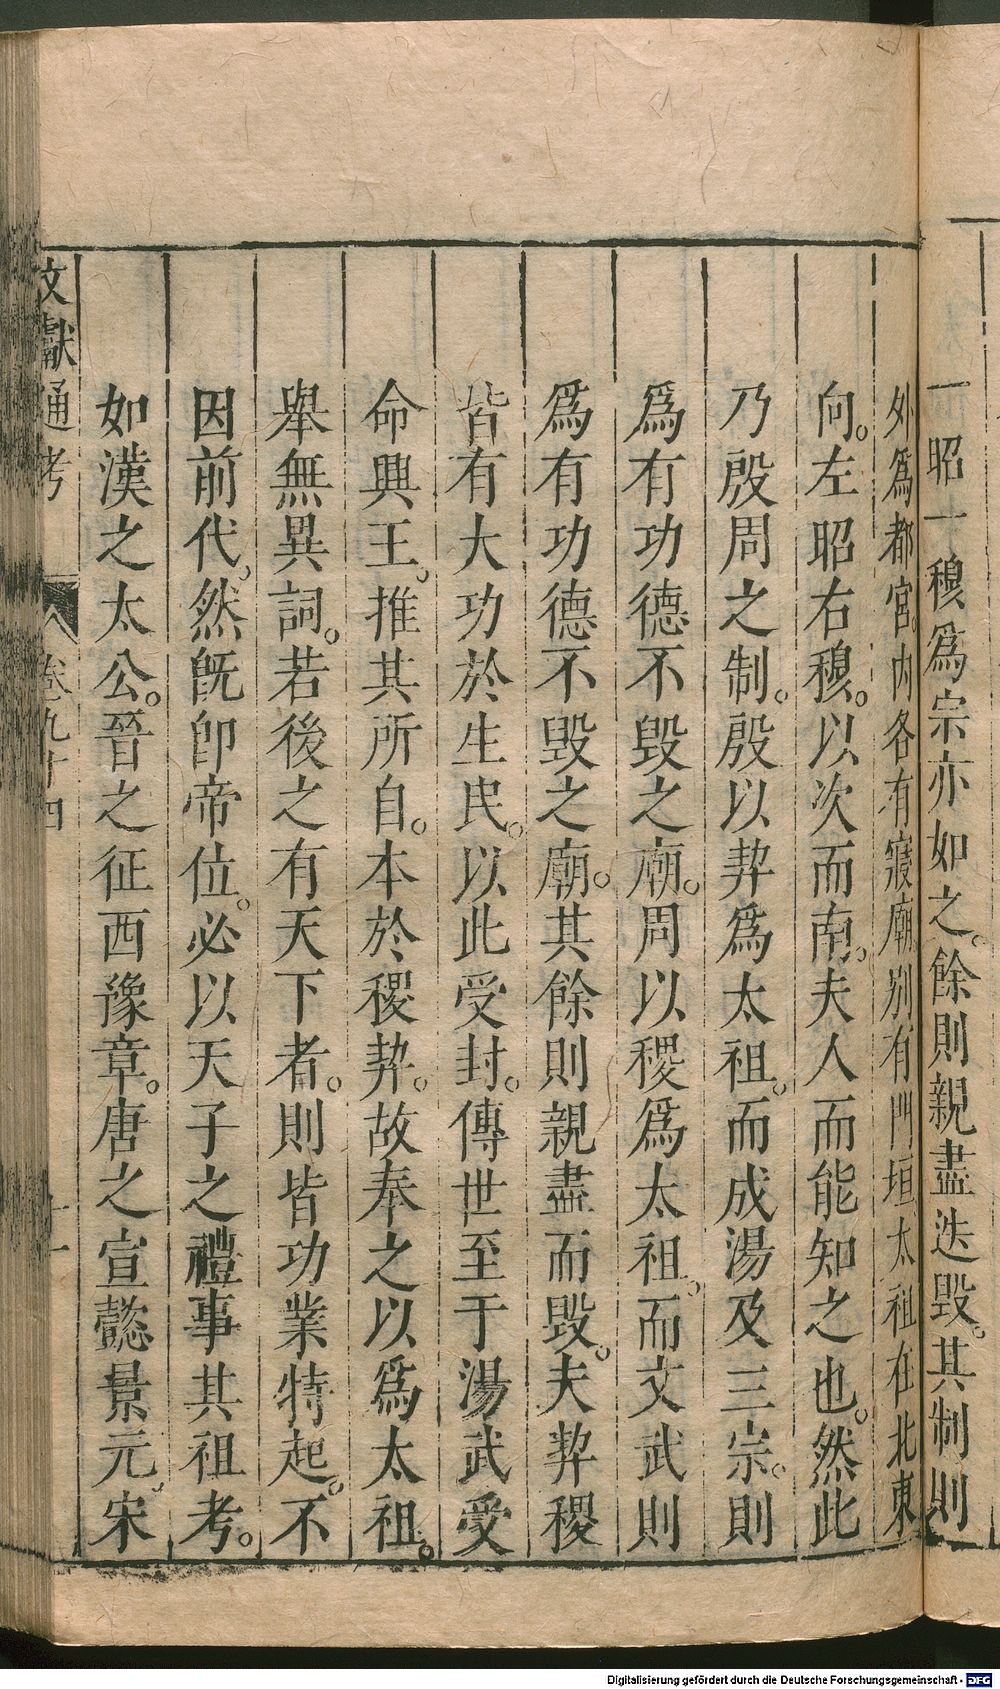 一昭一穆爲宗亦如之。餘則親盡迭毀。其制則
外爲都宮。内各有寢廟別有門垣太祖在北東
向。左昭右穆。以次而南。夫人而能知之也。然此
乃殷周之制。殷以契爲太祖。而成湯及三宗。則
爲有功德不毀之廟。周以稷爲太祖。而文武則
爲有功德不毀之廟。其餘則親盡而毀。夫契稷
皆有大功於生民。以此受封。傳世至于湯武受
命興王。推其所自。本於稷契。故奉之以爲太祖。
舉無異詞。若後之有天下者。則皆功業特起。不
因前代。然旣卽帝位。必以天子之禮事其祖考。
如漢之太公。晉之征西豫章。唐之宣懿景元。宋
文獻通考 卷九十四 十一
Digitalisierung gefördert durch die Deutsche Forschungsgemeinschaft - DFG